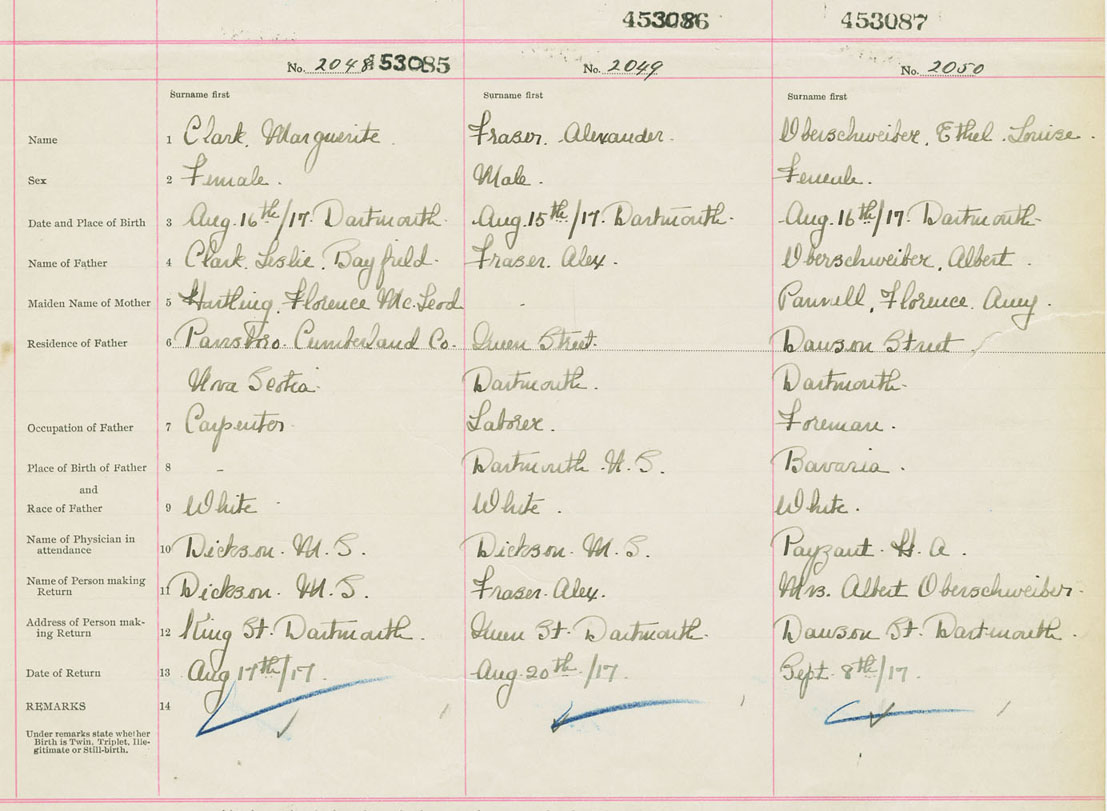 453086 453087
No. 2048 453085 No. 2049 No. 2050
Surname first Surname first Surname first
Name 1 Clark, Marguerite Fraser. Alexander. Oberschweiber, Ethel Louise.
Sex 2 Female. Male. Female.
Date and Place of Birth 3 Aug. 16th/17. Dartmouth. Aug. 15th/17. Dartmouth. Aug. 16th/17. Dartmouth.
Name of Father 4 Clark, Leslie, Bayfield. Fraser. Alex. Oberschweiber, Albert.
Maiden Name of Mother 5 Hartling, Florence McLeod - Pannell, Florence. Amy.
Residence of Father 6 Parrsboro. Cumberland Co. Green Street. Dawson Street
Nova Scotia Dartmouth. Dartmouth.
Occupation of Father 7 Carpenter. Laborer. Foreman.
Place of Birth of Father 8 - Dartmouth N.S. Bavaria.
and
Race of Father 9 White White. White.
Name of Physician in
attendance 10 Dickson. M. S. Dickson. M. S. Payzant. H. A.
Name of Person making
Return 11 Dickson. M. S. Fraser. Alex. Mrs. Albert Oberschweiber.
Address of Person mak-
ing Return 12 King St. Dartmouth. Green St. Dartmouth. Dawson St. Dartmouth.
Date of Return 13 Aug 17th/17. Aug. 20th/17. Sept. 8th/17.
REMARKS 14
Under remarks state whether
Birth is Twin, Triplet, Ille-
gitimate or Still-birth.